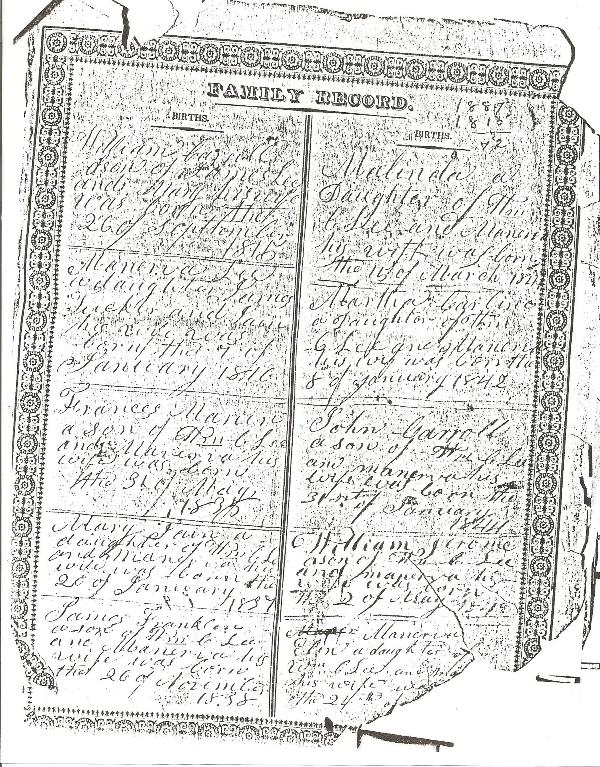 FAMILY RECORD.
1887
1815
72
BIRTHS.
William Carroll
a son of Lee
and Mary his wife
was born the
26 of September
1815
Manerva Lee
a daughter James
and
his wife was
born the 7 of
January 1816
Frances Marion
a son of Wm C Lee
and Manerva his
wife was born
the 31 of May
1835
Mary Jain a
daughter of Wm C Lee
and Manerva his
wife was born the
20 of January
1837
James Franklin
a son of Wm C Lee
and Manerva his
wife was born
the 26 of November
1838
BIRTHS.
Malinda a
Daughter of Wm
C Lee and Manerva
his wife was born
the 15 of March
Martha Carline
a Daughter of Wm
C Lee and Manerva
his wife was born the
8 of January 1842
John Carroll
a son of Wm C Lee
and manerva his
wife was born the
31 of January
1844
William Jerome
a son of Wm C Lee
and manerva his
wife was born
the 2 of May 1848
Manerva
Elen a daughter
Wm C Lee and
his wife was
the 29 th